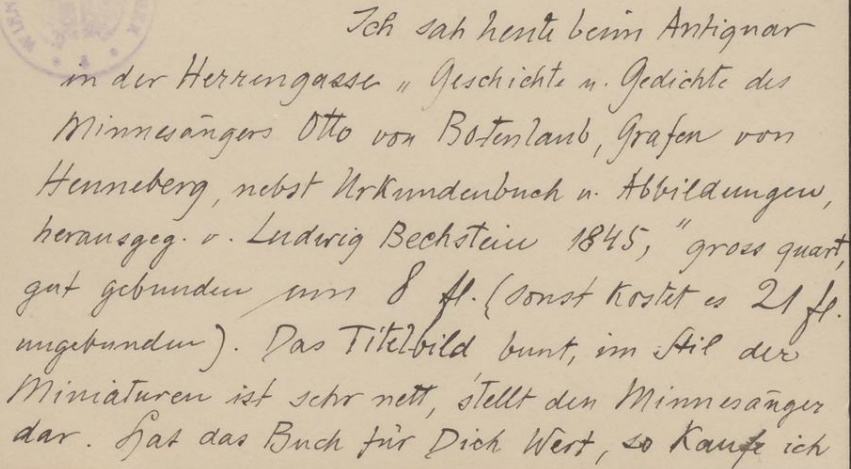 Ich sah heute beim Antiquar
in der Herrengasse „Geschichte u. Gedichte des
Minnesängers Otto von Botenlaub, Grafen von
Henneberg, nebst Urkundenbuch u. Abbildungen,
herausgeg. v. Ludwig Bechstein 1845," gross quart,
gut gebunden um 8 fl. (sonst kostet es 21 fl.
ungebunden). Das Titelbild, bunt, im Stil der
Miniaturen ist sehr nett, stellt den Minnesänger
dar. Hat das Buch für Dich Wert, so kaufe ich